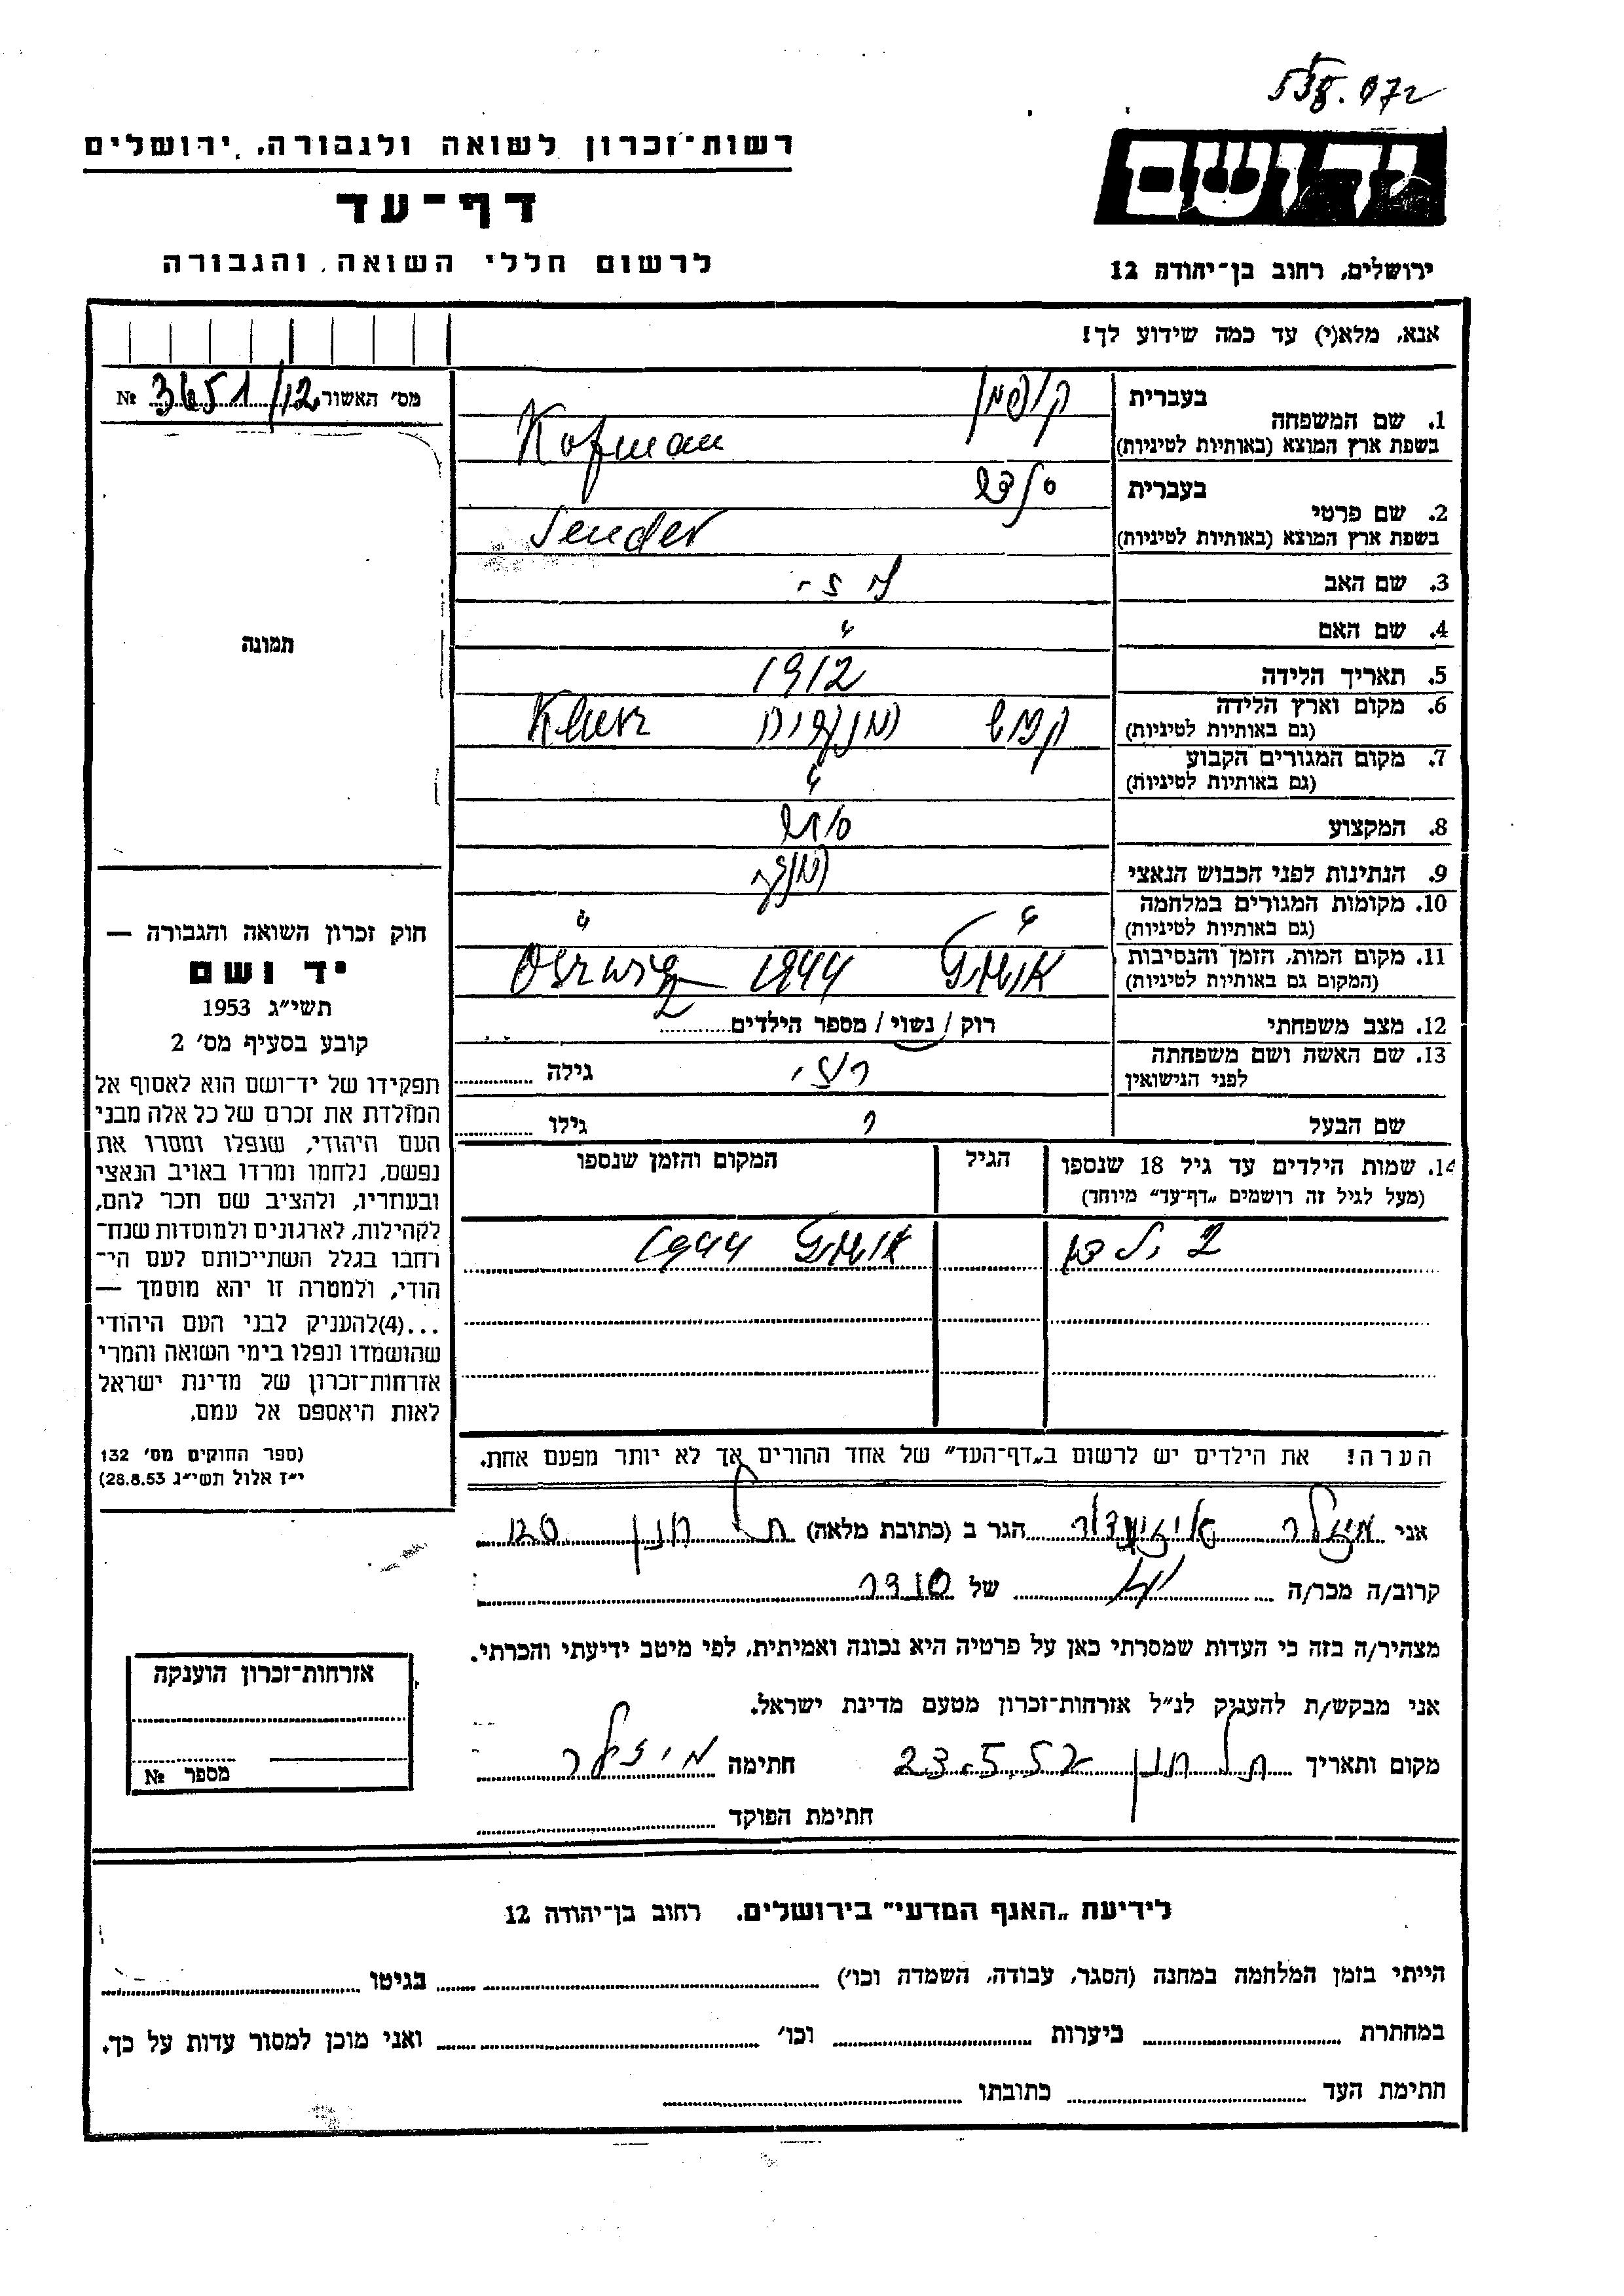 רשות־זכרון לשואה ולגבורה, ירושלים
דף־עד
לרשום חללי השואה והגבורה
יד ושם
ירושלים, רחוב בן־יהודה 12
אנא, מלא(י) עד כמה שידוע לך!
מס' האשור 3651/12 №
תמונה
חוק זכרון השואה והגבורה —
יד ושם
תשי״ג 1953
קובע בסעיף מס' 2
תפקידו של יד־ושם הוא לאסוף אל
המולדת את זכרם של כל אלה מבני
העם היהודי, שנפלו ומסרו את
נפשם, נלחמו ומרדו באויב הנאצי
ובעוזריו, ולהציב שם וזכר להם,
לקהילות, לארגונים ולמוסדות שנח־
רחבו בגלל השתייכותם לעם הי־
הודי, ולמטרה זו יהא מוסמך —
...(4)להעניק לבני העם היהודי
שהושמדו ונפלו בימי השואה והמרי
אזרחות־זכרון של מדינת ישראל
לאות היאספם אל עמם.
(ספר החוקים מס' 132
י״ז אלול תשי״ג 28.8.53)
בעברית קופמן
1. שם המשפחה
בשפת ארץ המוצא (באותיות לטיניות) Kofman
בעברית
2. שם פרטי
בשפת ארץ המוצא (באותיות לטיניות) Sender
3. שם האב
4. שם האם
5. תאריך הלידה 1912
6. מקום וארץ הלידה
(גם באותיות לטיניות)
7. מקום המגורים הקבוע
(גם באותיות לטיניות)
8. המקצוע
9. הנתינות לפני הכבוש הנאצי
10. מקומות המגורים במלחמה
(גם באותיות לטיניות)
11. מקום המות, הזמן והנסיבות 1944
(המקום גם באותיות לטיניות)
12. מצב משפחתי רוק / נשוי / מספר הילדים 2
13. שם האשה ושם משפחתה
לפני הנישואין גילה
שם הבעל גילו
14. שמות הילדים עד גיל 18 שנספו הגיל המקום והזמן שנספו
(מעל לגיל זה רושמים „דף־עד״ מיוחד)
2 ילדים 1944
הערה! את הילדים יש לרשום ב„דף־העד״ של אחד ההורים אך לא יותר מפעם אחת.
אני הגר ב (כתובת מלאה) תל חנן
קרוב/ה מכר/ה של
מצהיר/ה בזה כי העדות שמסרתי כאן על פרטיה היא נכונה ואמיתית, לפי מיטב ידיעתי והכרתי.
אני מבקש/ת להעניק לנ״ל אזרחות־זכרון מטעם מדינת ישראל.
מקום ותאריך תל חנן 23.5.57 חתימה
חתימת הפוקד
אזרחות־זכרון הוענקה
מספר №
לידיעת „האגף המדעי״ בירושלים, רחוב בן־יהודה 12
הייתי בזמן המלחמה במחנה (הסגר, עבודה, השמדה וכו') בגיטו
במחתרת ביערות וכו' ואני מוכן למסור עדות על כך.
חתימת העד כתובתו